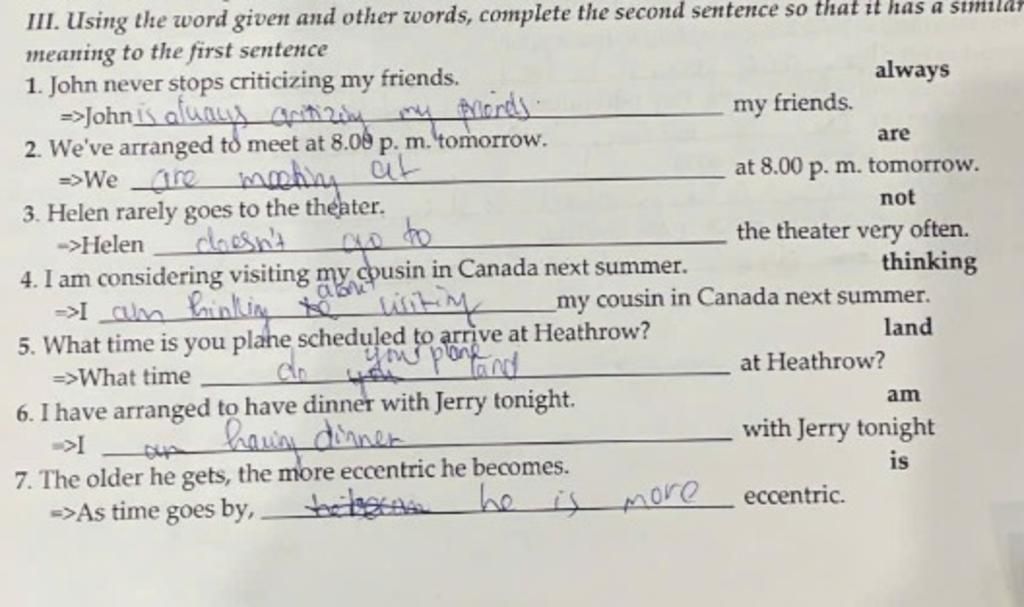 III. Using the word given and other words, complete the second sentence so that it has a similar
meaning to the first sentence
1. John never stops criticizing my friends. always
=>John is always critizing my friends my friends.
2. We've arranged to meet at 8.00 p. m. tomorrow. are
=>We are meeting at at 8.00 p. m. tomorrow.
3. Helen rarely goes to the theater. not
=>Helen doesn't go to the theater very often.
4. I am considering visiting my cousin in Canada next summer. thinking
=>I am thinking about visiting my cousin in Canada next summer.
5. What time is you plane scheduled to arrive at Heathrow? land
=>What time do your plane land at Heathrow?
6. I have arranged to have dinner with Jerry tonight. am
=>I am having dinner with Jerry tonight
7. The older he gets, the more eccentric he becomes. is
=>As time goes by, he is more eccentric.